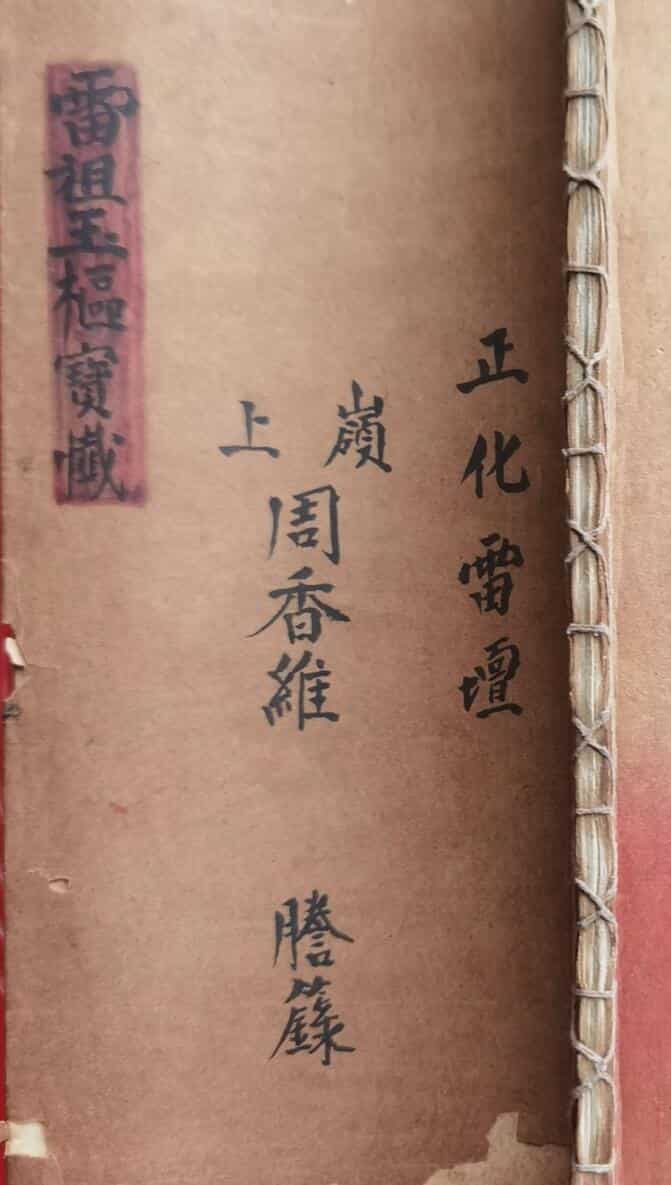 正化雷壇
嶺上
周香維
謄籙
雷祖玉樞寶懺